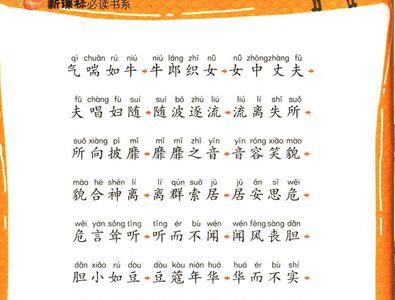 新课标必读书系
qì chuǎn rú niú niú láng zhī nǚ nǚ zhōng zhàng fū
气喘如牛→牛郎织女→女中丈夫→
fū chàng fù suí suí bō zhú liú liú lí shī suǒ
夫唱妇随→随波逐流→流离失所→
suǒ xiàng pī mǐ mǐ mǐ zhī yīn yīn róng xiào mào
所向披靡→靡靡之音→音容笑貌→
mào hé shén lí lí qún suǒ jū jū ān sī wēi
貌合神离→离群索居→居安思危→
wēi yán sǒng tīng tīng ér bù wén wén fēng sàng dǎn
危言耸听→听而不闻→闻风丧胆→
dǎn xiǎo rú dòu dòu kòu nián huá huá ér bù shí
胆小如豆→豆蔻年华→华而不实→